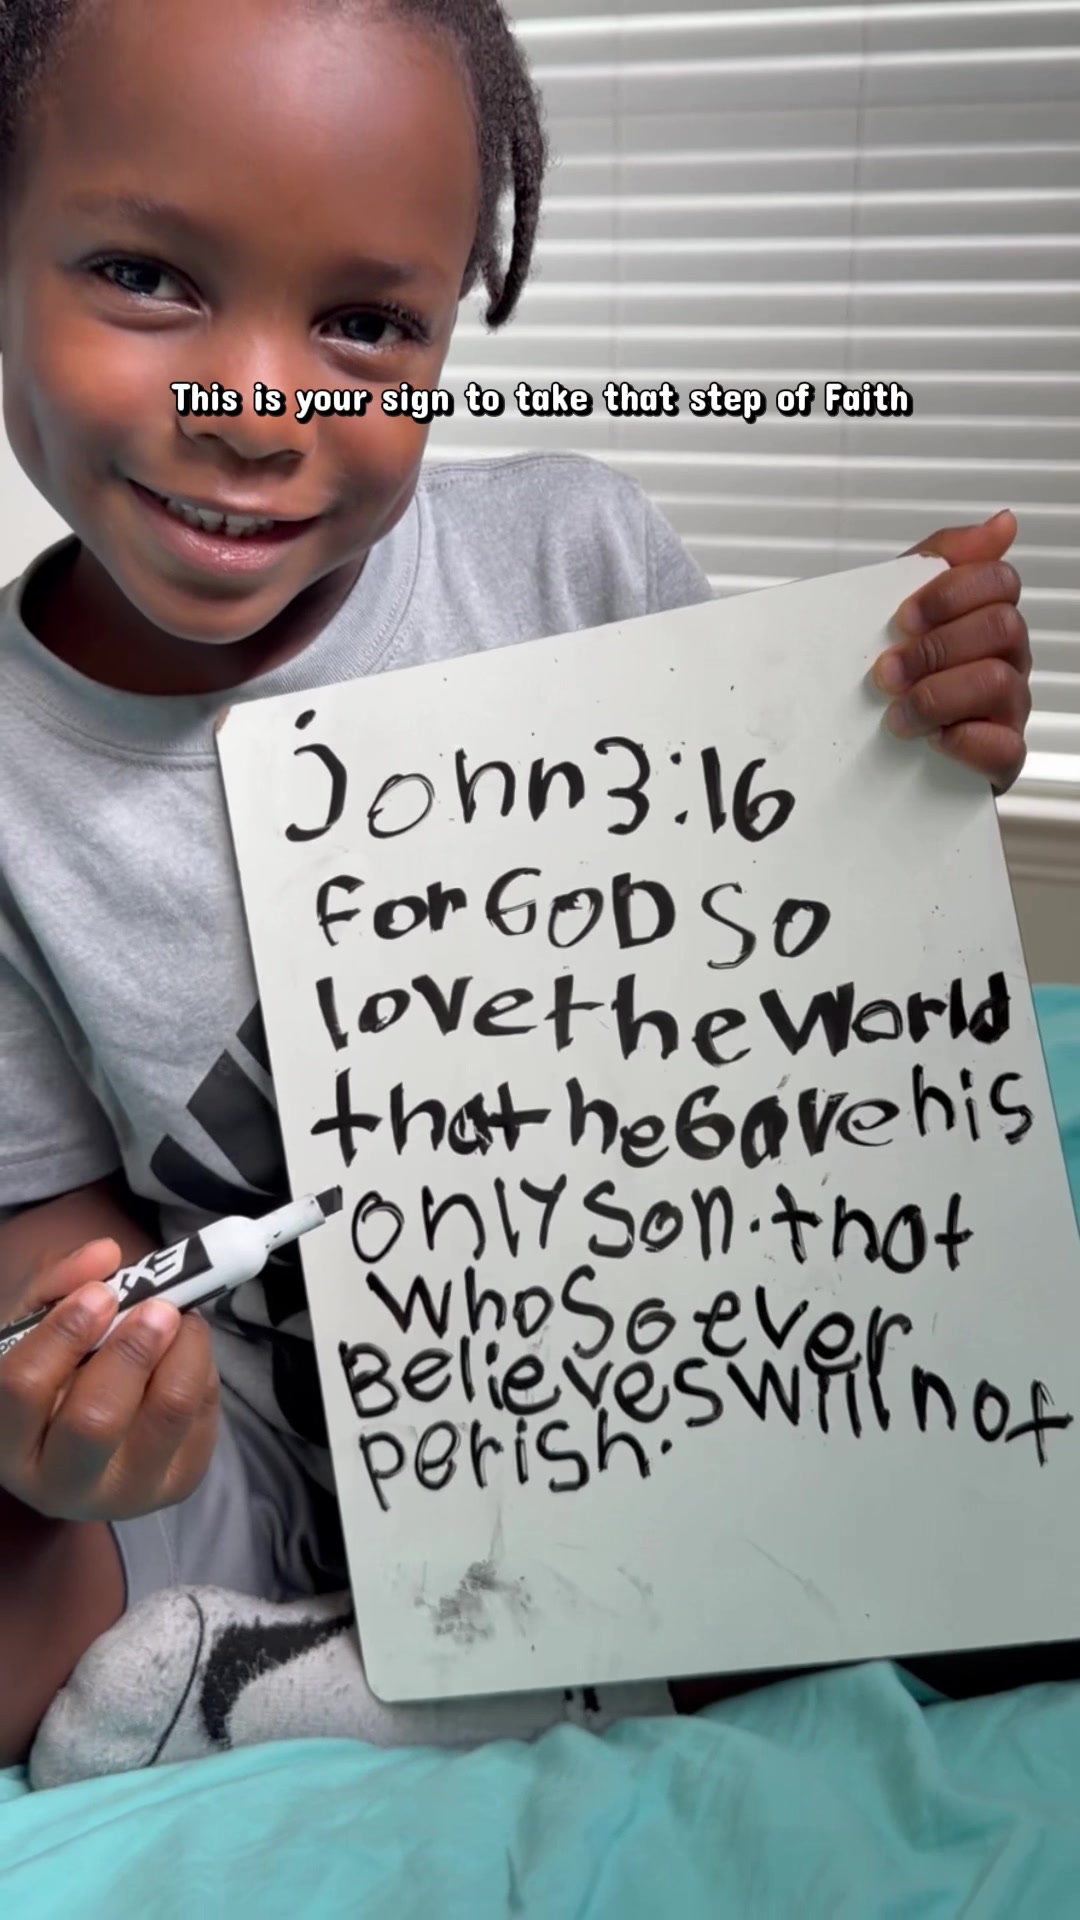 This is your sign to take that step of Faith
john 3:16
for GOD so
love the world
that he Gave his
only son. that
whoSo ever
Believes will not
perish.
EXP